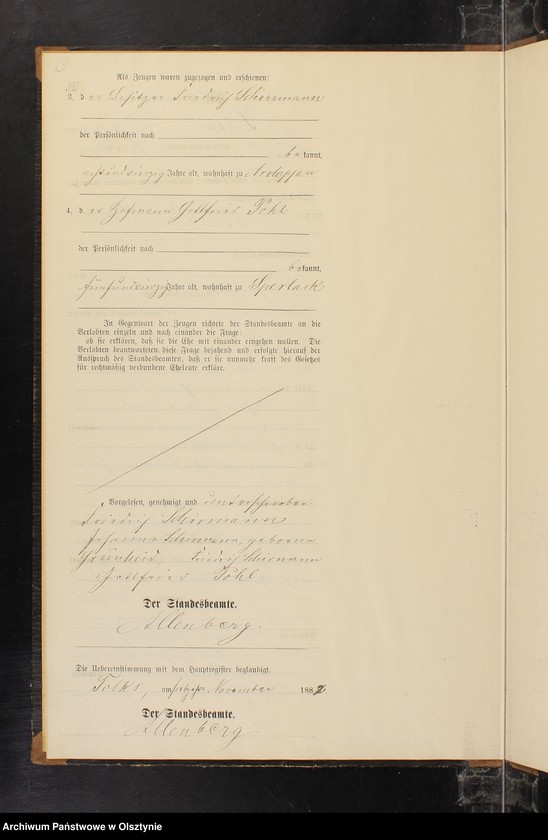 Als Zeugen waren zugezogen und erschienen:
3. der Besitzer Friedrich Schirrmann
der Persönlichkeit nach
bekannt,
achtundvierzig Jahre alt, wohnhaft zu
4. der Hofmann Gottfried Pohl
der Persönlichkeit nach
bekannt,
fünfundvierzig Jahre alt, wohnhaft zu Sperlack
In Gegenwart der Zeugen richtete der Standesbeamte an die
Verlobten einzeln und nach einander die Frage:
ob sie erklären, daß sie die Ehe mit einander eingehen wollen. Die
Verlobten beantworteten diese Frage bejahend und erfolgte hierauf der
Ausspruch des Standesbeamten, daß er sie nunmehr kraft des Gesetzes
für rechtmäßig verbundene Eheleute erkläre.
Vorgelesen, genehmigt und unterschrieben
Friedrich Schirmann
Johanna Schirmann, geborene
Grünheid Friedrich Schirmann
Gottfried Pohl
Der Standesbeamte.
Allenberg.
Die Uebereinstimmung mit dem Hauptregister beglaubigt.
Tolks, am November 1882
Der Standesbeamte.
Allenberg
Archiwum Państwowe w Olsztynie